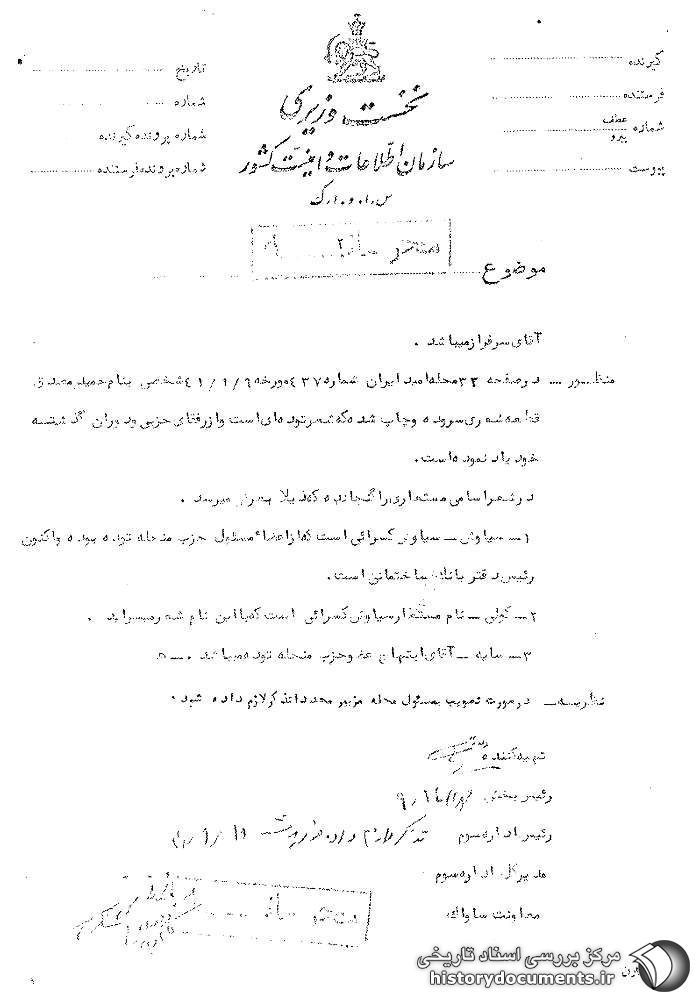 گیرنده
فرستنده
شماره عطف پیرو
پیوست
نخست وزیری
سازمان اطلاعات و امنیت کشور
س.ا.و.ا.ک
تاریخ
شماره
شماره پرونده گیرنده
شماره پرونده فرستنده
موضوع
آقای سرفراز میباشد .
منظور ــ در صفحه ٣٢ مجله امید ایران شماره ٤٣٧ مورخه ٤١/١/٦ شخصی بنام حمید مصدق
قطعه شعری سروده و چاپ شده که شعر توده ای است و از رفقای حزبی و دوران گذشته
خود یاد نموده است.
در شعر اسامی مستعاری را گنجانده که ذیلا بعرض میرسد .
١ــ سیاوش ــ سیاوش کسرائی است که از اعضاء مسئول حزب منحله توده بوده و اکنون
رئیس دفتر بانک ساختمانی است.
٢ــ کولی ــ نام مستعار سیاوش کسرائی است که با این نام شعر میسراید .
٣ــ سایه ــ آقای ابتهاج عضو حزب منحله توده میباشد .
نظریه ــ در صورت تصویب بمسئول مجله مزبور مجددا تذکر لازم داده شود .
تهیه کننده
رئیس بخش
رئیس اداره سوم
مدیر کل اداره سوم
معاونت ساواک
مرکز بررسی اسناد تاریخی
historydocuments.ir